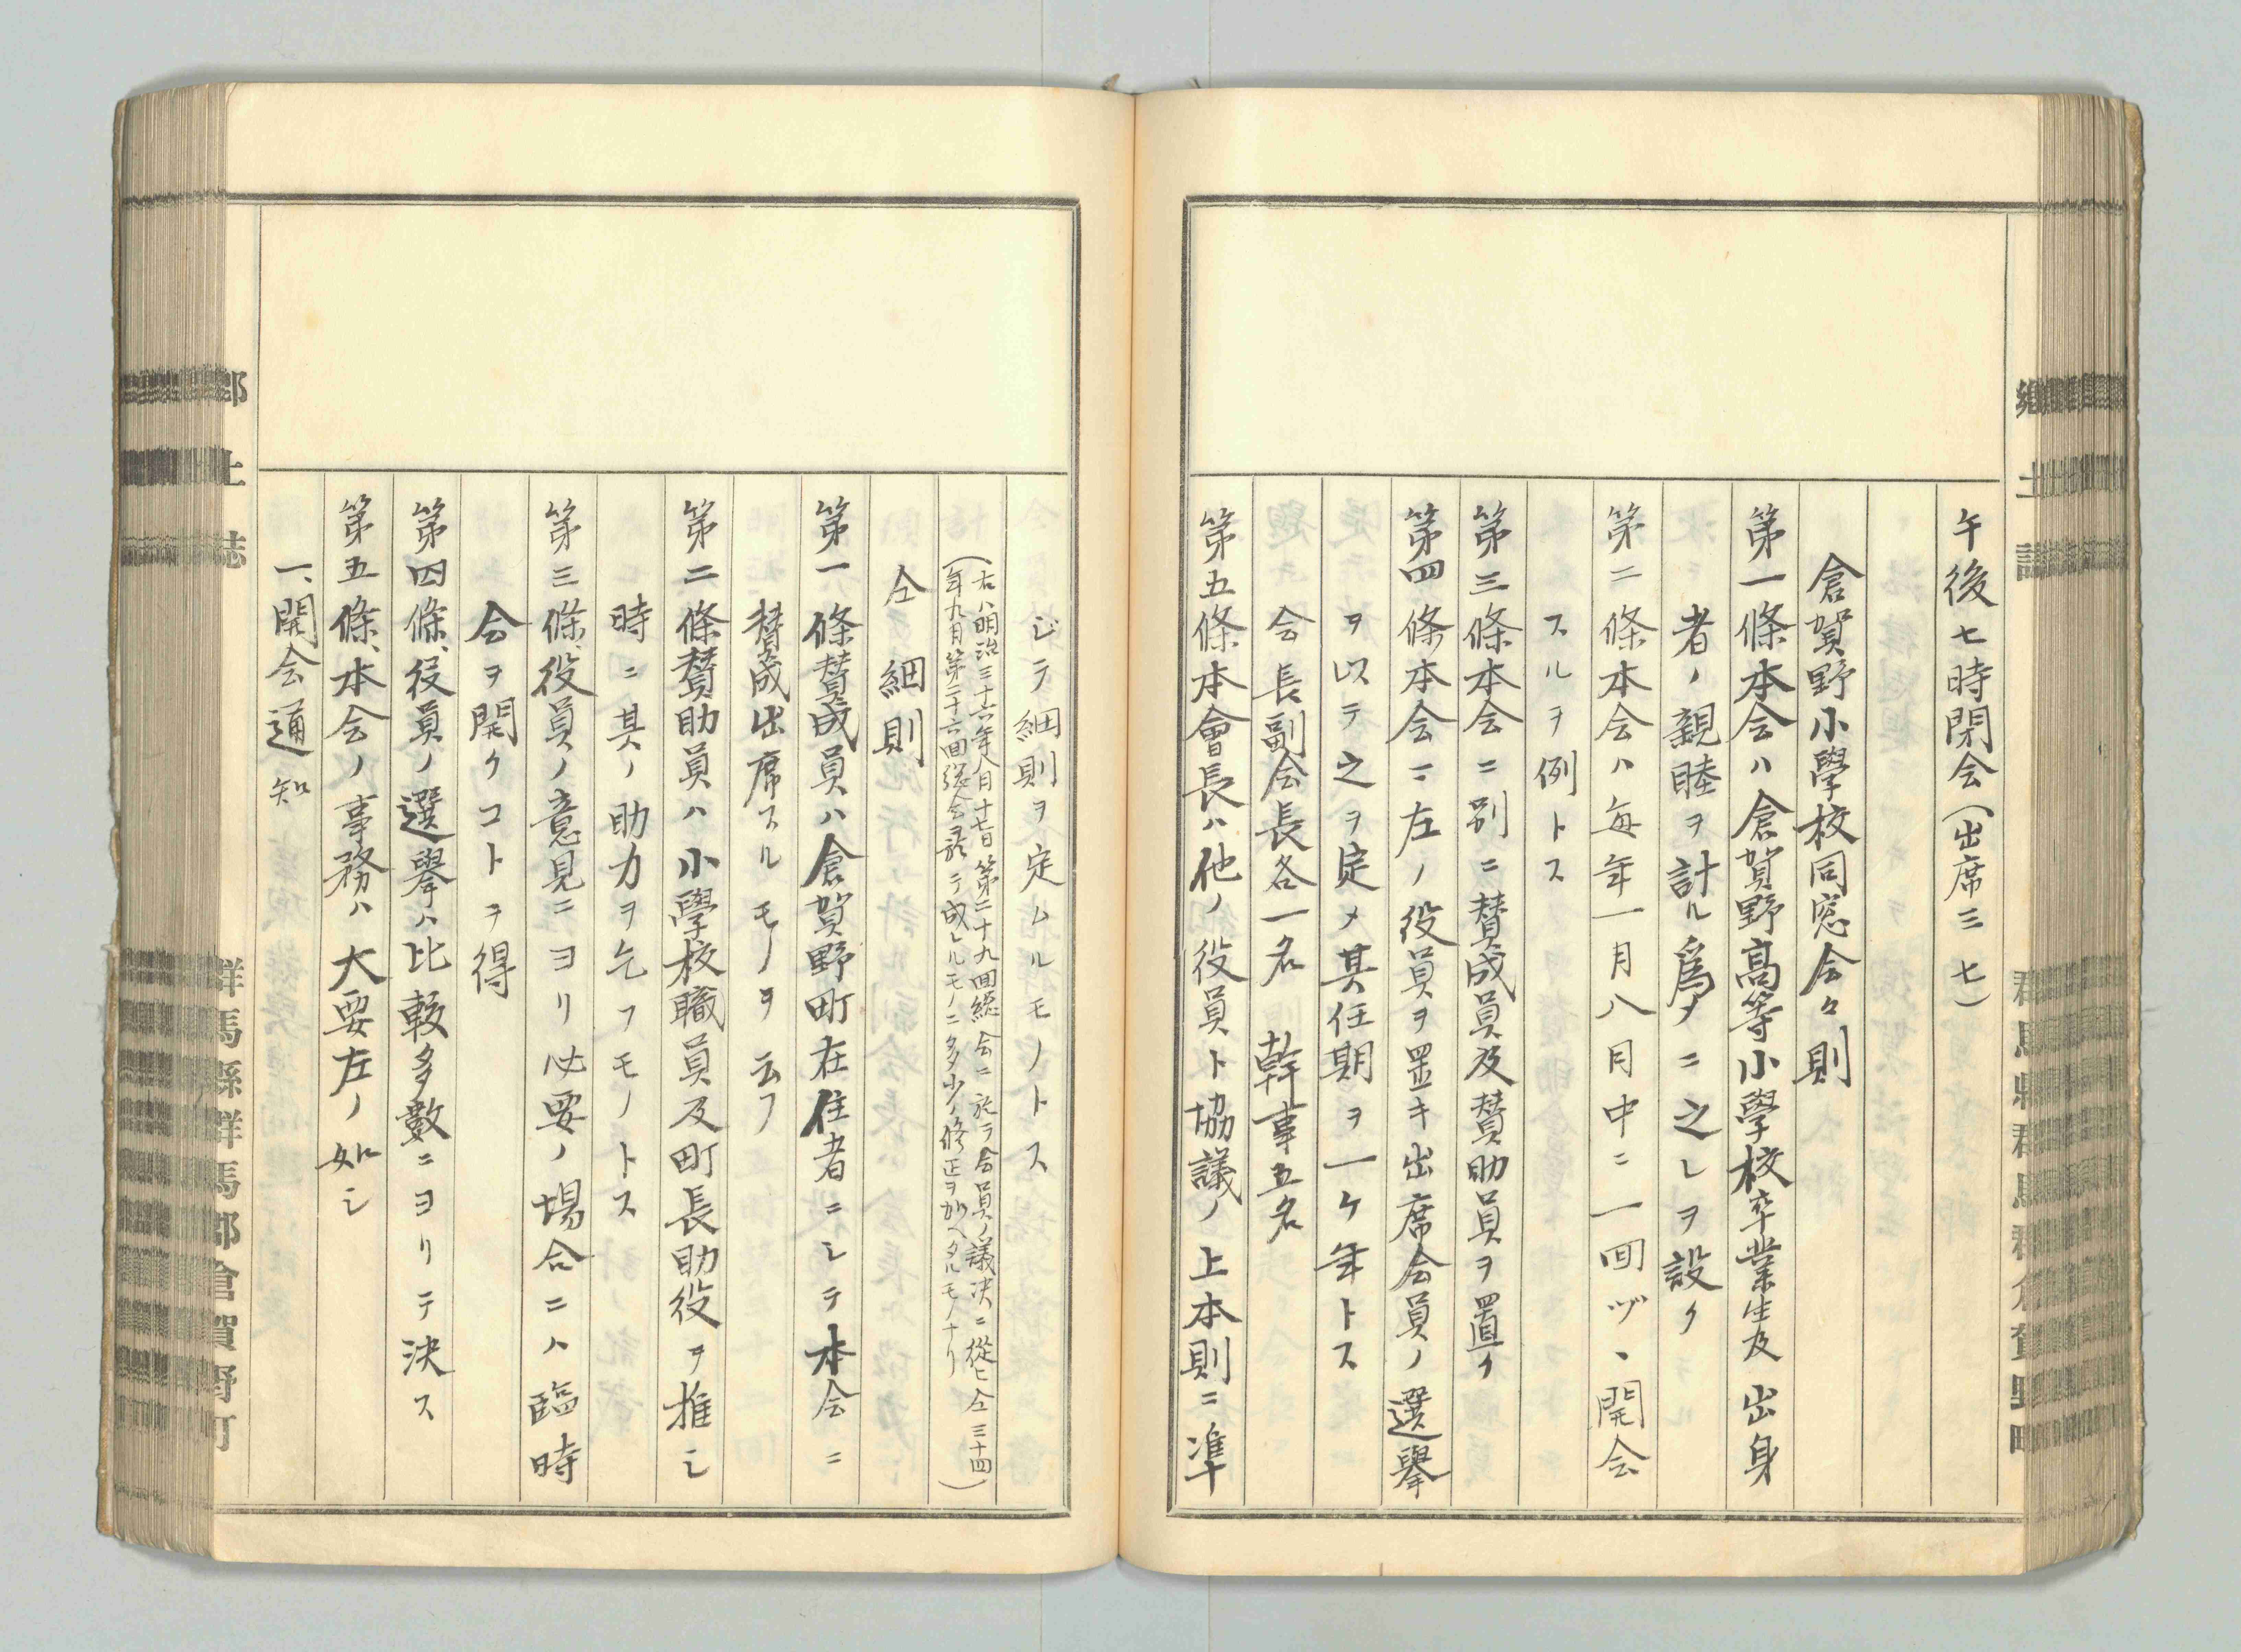 鄕土誌
午後七時閉会（出席三七）
倉賀野小學校同窓会々則
第一條本会ハ倉賀野高等小學校卒業生及出身
者ノ親睦ヲ計ル爲メニ之レヲ設ク
第二條本会ハ每年一月八月中ニ一回ヅヽ開会
スルヲ例トス
第三條本会ニ別ニ賛成員及賛助員ヲ置ク
第四條本会ニ左ノ役員ヲ置キ出席会員ノ選擧
ヲ以テ之ヲ定メ其任期ヲ一ケ年トス
会長副会長各一名　幹事五名
第五條本會長ハ他ノ役員ト協議ノ上本則ニ準
じテ細則ヲ定ムルモノトス
（右ハ明治三十六年八月十七日第二十九回総会ニ於テ会員ノ議決ニ從ヒ仝三十四
年九月第二十六回総会ニテ成レルモノニ多少ノ修正ヲ加ヘタルモノナリ）
仝　細則
第一條賛成員ハ倉賀野町在住者ニシテ本会ニ
賛成出席スルモノヲ云フ
第二條賛助員ハ小學校職員及町長助役ヲ推シ
時ニ其ノ助力ヲ乞フモノトス
第三條、役員ノ意見ニヨリ必要ノ場合ニハ臨時
会ヲ開クコトヲ得
第四條、役員ノ選擧ハ比較多數ニヨリテ決ス
第五條、本会ノ事務ハ大要左ノ如シ
一、開会通知
郷土誌
群馬縣群馬郡倉賀野町